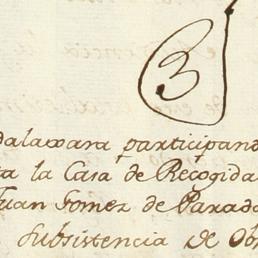 3
dalaxara participand
ta la Casa de Recogida
Juan Gomez de Parada
subsistencia de Ob